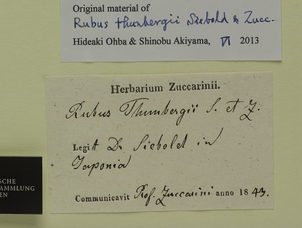 Original material of
Rubus thunbergii Siebold & Zucc.
Hideaki Ohba & Shinobu Akiyama, VI 2013
Herbarium Zuccarinii.
Rubus Thunbergii S. et Z.
Legit Dr Siebold in
Japonia
Communicavit Prof. Zuccarini anno 1843.
ISCHE
SAMMLUNG
EN